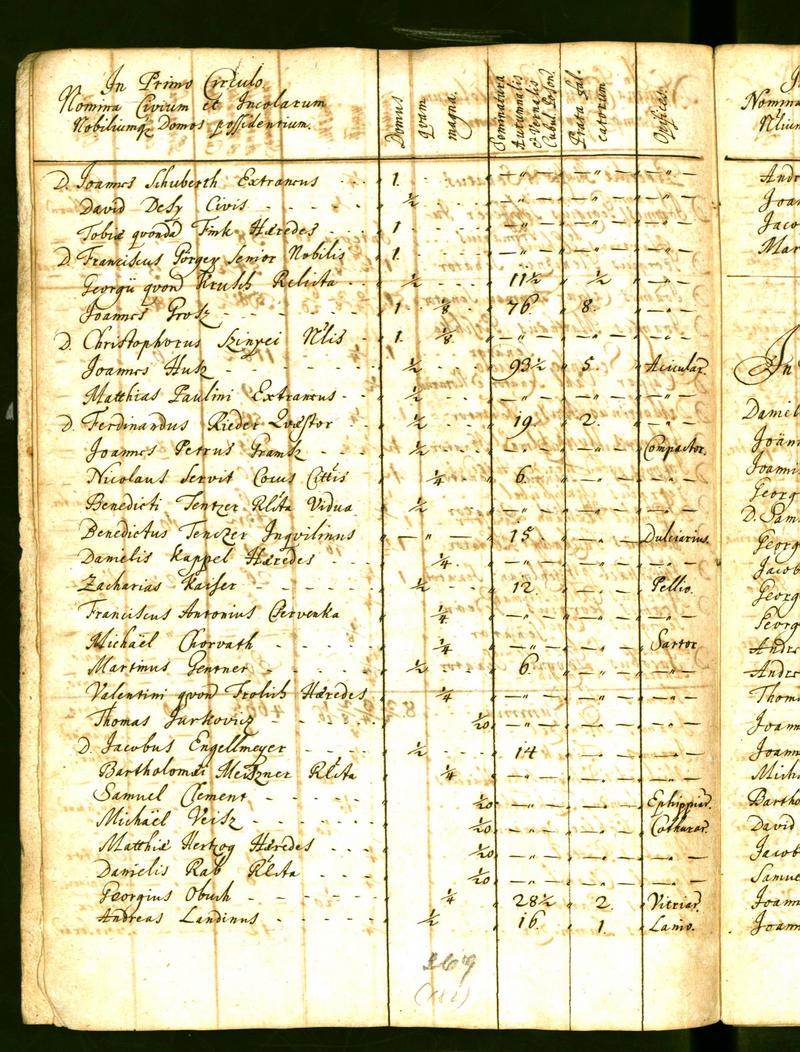 In Primo Circulo
Nomina Civium et Incolarum
Nobiliumq Domos possidentium.
Domus
quam
magna.
Seminatura
Autumnalis
et Vernalis
Cubul. Poson.
Prata fal
catorum
Opifices
D. Joannes Schuberth Extraneus 1. — „ — — „ — — „ —
David Desy Civis ½ — „ — — „ — — „ —
Tobiæ quondā Fink Hæredes 1 — „ — — „ — — „ —
D. Franciscus Görgey Senior Nobilis 1. — „ — — „ — — „ —
Georgii quond Krusch Relicta ½ 11½ ½ — „ —
Joannes Grosz 1 ⅛ 76. 8. — „ —
D. Christophorus Szinyei Nlis 1. ⅛ — „ — — „ — — „ —
Joannes Husz ½ 93½ 5. Acicular.
Matthias Paulini Extraneus ½ — „ — — „ — — „ —
D. Ferdinandus Rieder Quæstor ½ 19. 2. — „ —
Joannes Petrus ½ — „ — — „ — Compactor.
Nicolaus Servit Cocus Cittis ¼ 6. — „ — — „ —
Benedicti Tentzer Rlta Vidua ½ — „ — — „ — — „ —
Benedictus Tenczer Inqvilinus — „ — 15. — „ — Dulciarius.
Danielis Kappel Hæredes ¼ — „ — — „ — — „ —
Zacharias Kaiser ½ 12. — „ — Pellio.
Franciscus Antonius Cervenka ¼ — „ — — „ — — „ —
Michaël Chorvath ¼ — „ — — „ — Sartor
Martinus Gentner ½ 6. — „ — — „ —
Valentini quond Frölich Hæredes ¼ — „ — — „ — — „ —
Thomas Jurkovicz 1/20 — „ — — „ — — „ —
D. Jacobus Engellmeyer ½ 14 — „ — — „ —
Bartholomæi Meiszner Rlta ¼ — „ — — „ — — „ —
Samuel Clement 1/20 — „ — — „ — Ephippiar.
Michael Veisz 1/20 — „ — — „ — Cothurar.
Matthiæ Hertzog Hæredes 1/20 — „ — — „ — — „ —
Danielis Rab Rlta 1/20 — „ — — „ — — „ —
Georgius Obush ¼ 28½ 2. Vitriar.
Andreas Landinus ½ 16. 1. Lanio.
Nomina
Andre
Joan
Jaco
Mar
In
Daniel
Joan
Joannis
Georg
D. Sam
Georg
Jacob
Georg
Georg
Andre
Andre
Thom
Joann
Joann
Mich
Barth
David
Jacob
Samue
Joann
Joann